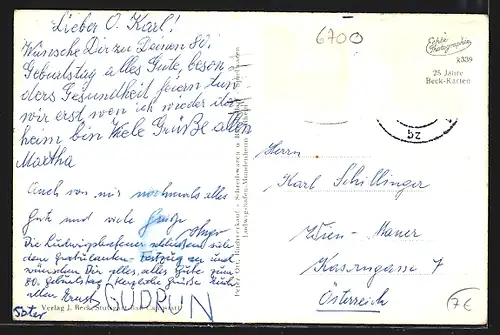 Lieber O. Karl!
Wünsche Dir zu Deinem 80.
Geburtstag alles Gute, beson-
ders Gesundheit feiern tun
wir erst, wen ich wieder da-
heim bin Viele Grüße allen
Martha
Auch von mir nochmals alles
Gute und viele Grüße
Hugo
Die Ludwigshafener schließen sich
dem Gratulanten-Festzug an und
wünschen Dir alles, alles Gute zum
80. Geburtstag! Herzliche Grüße Euch
allen Ernst GUDRUN
Verlag J. Beck, Stuttgart
Peter Ott, Schreibwaren
Ludwigshafen/Mundenheim
6700
Echte
Photographie
k339
25 Jahre
Beck-Karten
bz
Herrn
Karl Schillinger
Wien - Mauer
Kaserngasse 7
Österreich
7€